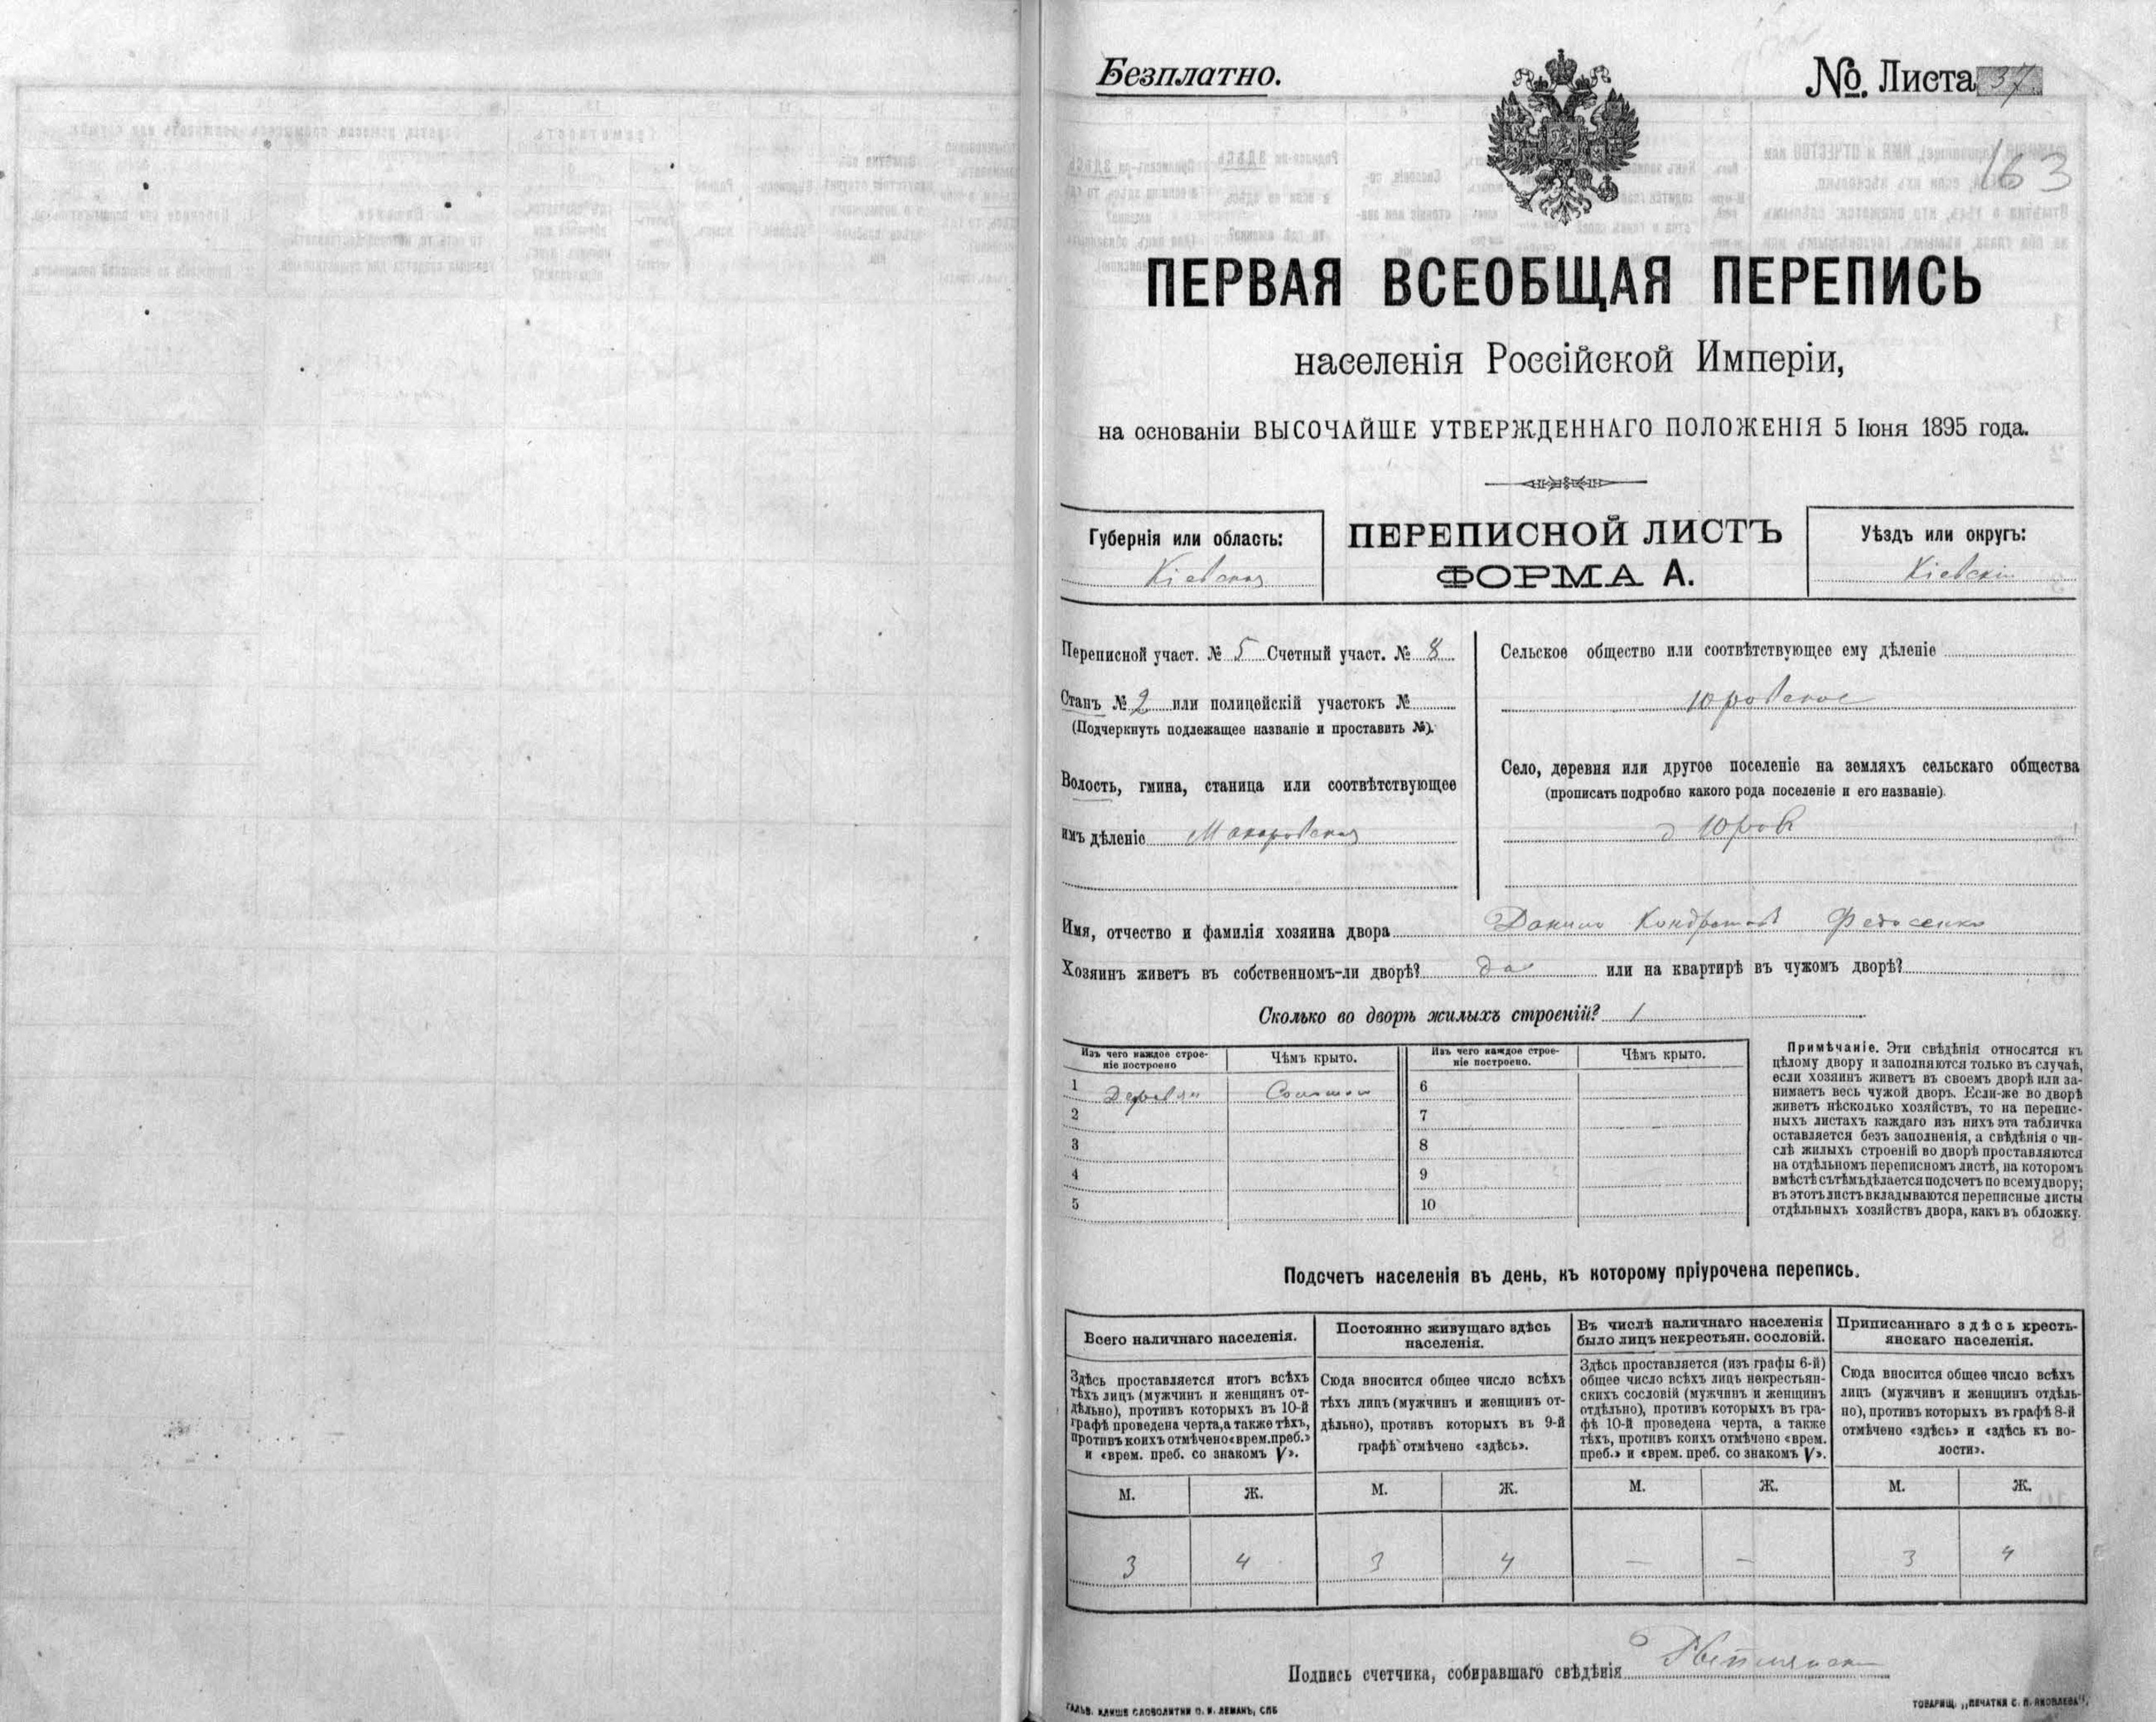 Безплатно.
№. Листа 37
163
ПЕРВАЯ ВСЕОБЩАЯ ПЕРЕПИСЬ
населенія Россійской Имперіи,
на основаніи ВЫСОЧАЙШЕ УТВЕРЖДЕННАГО ПОЛОЖЕНІЯ 5 Іюня 1895 года.
Губернія или область:
Кіевская
ПЕРЕПИСНОЙ ЛИСТЪ
ФОРМА А.
Уѣздъ или округъ:
Кіевскій
Переписной участ. № 5 Счетный участ. № 8
Станъ № 2 или полицейскій участокъ №
(Подчеркнуть подлежащее названіе и проставить №).
Волость, гмина, станица или соотвѣтствующее
имъ дѣленіе Макаровская
Сельское общество или соотвѣтствующее ему дѣленіе
Юровское
Село, деревня или другое поселеніе на земляхъ сельскаго общества
(прописать подробно какого рода поселеніе и его названіе).
д Юровъ
Имя, отчество и фамилія хозяина двора Данило Кондратовъ Федосенко
Хозяинъ живетъ въ собственномъ-ли дворѣ? да или на квартирѣ въ чужомъ дворѣ?
Сколько во дворѣ жилыхъ строеній? 1
Изъ чего каждое строе-
ніе построено
Чѣмъ крыто.
Изъ чего каждое строе-
ніе построено.
Чѣмъ крыто.
1 Деревян Солом 6
2 7
3 8
4 9
5 10
Примѣчаніе. Эти свѣдѣнія относятся къ
цѣлому двору и заполняются только въ случаѣ,
если хозяинъ живетъ въ своемъ дворѣ или за-
нимаетъ весь чужой дворъ. Если-же во дворѣ
живетъ нѣсколько хозяйствъ, то на перепис-
ныхъ листахъ каждаго изъ нихъ эта табличка
оставляется безъ заполненія, а свѣдѣнія о чи-
слѣ жилыхъ строеній во дворѣ проставляются
на отдѣльномъ переписномъ листѣ, на которомъ
вмѣстѣ съ тѣмъ дѣлается подсчетъ по всему двору;
въ этотъ листъ вкладываются переписные листы
отдѣльныхъ хозяйствъ двора, какъ въ обложку.
Подсчетъ населенія въ день, къ которому пріурочена перепись.
Всего наличнаго населенія.
Здѣсь проставляется итогъ всѣхъ
тѣхъ лицъ (мужчинъ и женщинъ от-
дѣльно), противъ которыхъ въ 10-й
графѣ проведена черта, а также тѣхъ,
противъ коихъ отмѣчено «врем. преб.»
и «врем. преб. со знакомъ V».
Постоянно живущаго здѣсь
населенія.
Сюда вносится общее число всѣхъ
тѣхъ лицъ (мужчинъ и женщинъ от-
дѣльно), противъ которыхъ въ 9-й
графѣ отмѣчено «здѣсь».
Въ числѣ наличнаго населенія
было лицъ некрестьян. сословій.
Здѣсь проставляется (изъ графы 6-й)
общее число всѣхъ лицъ некрестьян-
скихъ сословій (мужчинъ и женщинъ
отдѣльно), противъ которыхъ въ гра-
фѣ 10-й проведена черта, а также
тѣхъ, противъ коихъ отмѣчено «врем.
преб.» и «врем. преб. со знакомъ V».
Приписаннаго здѣсь кресть-
янскаго населенія.
Сюда вносится общее число всѣхъ
лицъ (мужчинъ и женщинъ отдѣль-
но), противъ которыхъ въ графѣ 8-й
отмѣчено «здѣсь» и «здѣсь къ во-
лости».
М. Ж. М. Ж. М. Ж. М. Ж.
3 4 3 4 — — 3 4
Подпись счетчика, собиравшаго свѣдѣнія
ГАЛЬВ. КЛИШЕ СЛОВОЛИТНИ О. И. ЛЕМАНЪ, СПБ
ТОВАРИЩ. „ПЕЧАТНЯ С. П. ЯКОВЛЕВА".